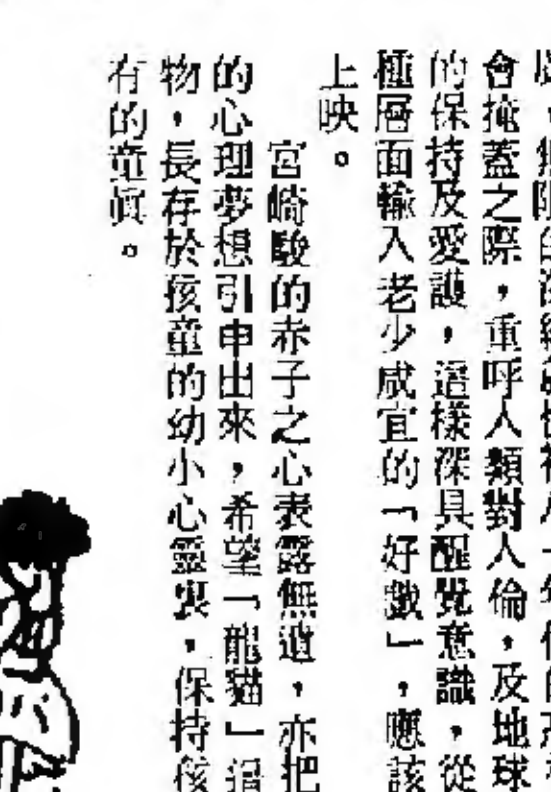 會掩蓋之際，重呼人類對人倫，及地球
的保持及愛護，這樣深具醒覺意識，從
種層面輸入老少咸宜的「好戲」，應該
上映。
宮崎駿的赤子之心表露無遺，亦把
的心理夢想引申出來，希望「龍貓」這
物，長存於孩童的幼小心靈裏，保持孩
有的童眞。